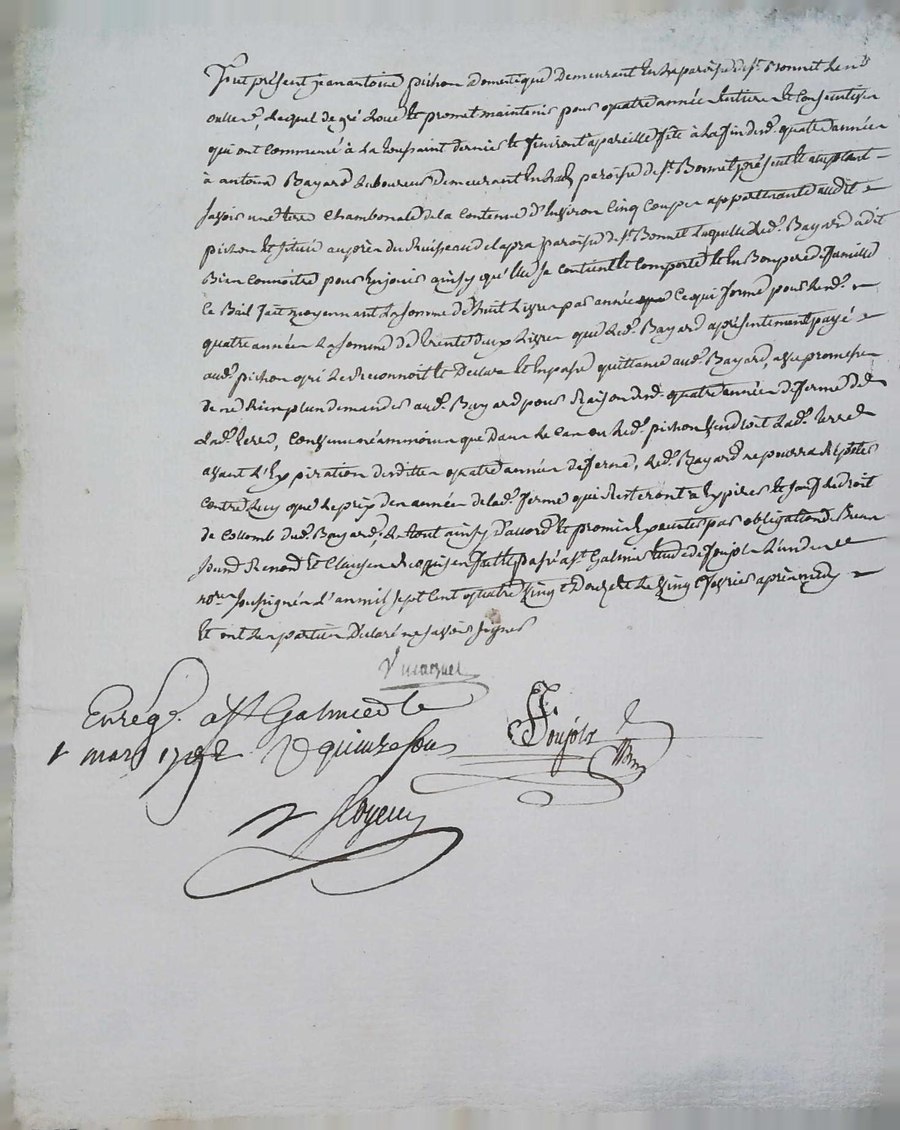 fut présent jean antoine pichon domestique demeurant en la paroisse de st. Bonnet
lequel de gré loue et promet maintenir pour quatre année entiere et consecutiver
qui ont commencé à la toussaint dernier et finiront a pareille fête à la fin desd. quatre année
à antoine Bayard laboureur demeurant en lad. paroisse de st. Bonnet présent et acceptant
savoir une terre chambonale de la contenue d'environ cinq coupes appartenante audit
pichon et située auprèn du Ruisseau paroisse de st. Bonnet laquelle led. Bayard a dit
Bien connoitre pour En jouir ainsy qu'elle se contient et comporte et en Bon pere de famille
ce Bail fait moyennant la somme de huit Livres par année ce qui forme pour lesd.
quatre année la somme de trente deux Livres que led. Bayard a présentement payé
aud. pichon qui le Reconnoit et Declare et en passe quittance aud. Bayard, avec promesse
de ne Rien plus demander aud. Bayard pour Raison desd. quatre année de ferme de
lad. terre, Convenu néammoins que dans le cas ou led. pichon vendroit lad. terre
avant l'Expiration desdites quatre année de ferme, led. Bayard ne pourra Repeter
contre luy que le prix des année de lad. ferme qui Resteront a Expirer et sauf le droit
de Collomb dud. Bayard, le tout ainsy d'accord et promis Executer par obligation de Biens
soumd. Renond. et Clauses Requises fait et passé a st. Galmier Etude de Foujols l'un des
nores. soussignés l'an mil sept cent quatre vingt Douze et le vingt fevrier aprèn midy
Et ont les parties Déclaré ne savoir signer
Enrég. a St Galmier le
1 mars 1792 R quinze sous
Foujols